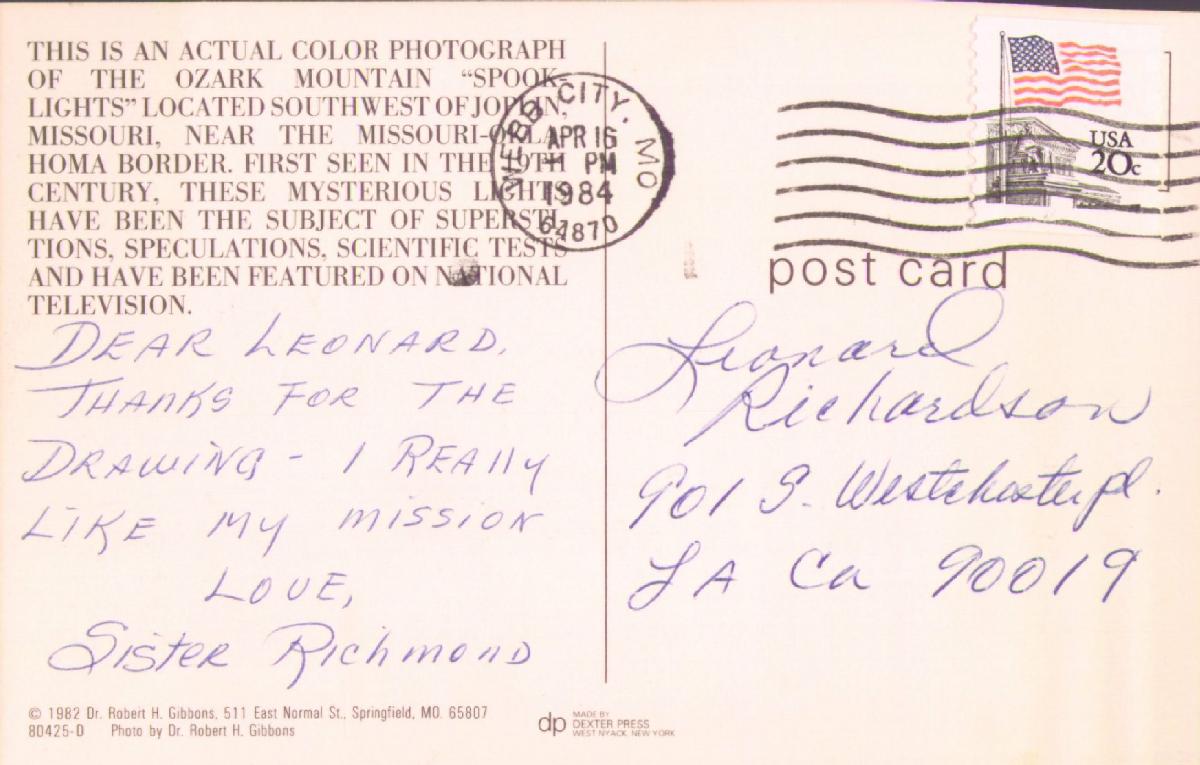 THIS IS AN ACTUAL COLOR PHOTOGRAPH
OF THE OZARK MOUNTAIN “SPOOK-
LIGHTS” LOCATED SOUTHWEST OF JOPLIN,
MISSOURI, NEAR THE MISSOURI-OKLA-
HOMA BORDER. FIRST SEEN IN THE 19TH
CENTURY, THESE MYSTERIOUS LIGHTS
HAVE BEEN THE SUBJECT OF SUPERSTI-
TIONS, SPECULATIONS, SCIENTIFIC TESTS
AND HAVE BEEN FEATURED ON NATIONAL
TELEVISION.
DEAR LEONARD,
THANKS FOR THE
DRAWING - I REAlly
LIKE MY MISSION
LOVE,
SISTER RichmoND
© 1982 Dr. Robert H. Gibbons, 511 East Normal St., Springfield, MO. 65807
80425-D Photo by Dr. Robert H. Gibbons
dp
MADE BY
DEXTER PRESS
WEST NYACK, NEW YORK
WEBB CITY, MO
APR 16
PM
1984
64870
USA
20c
post card
Leonard
Richardson
901 S. Westchester pl.
LA Ca 90019